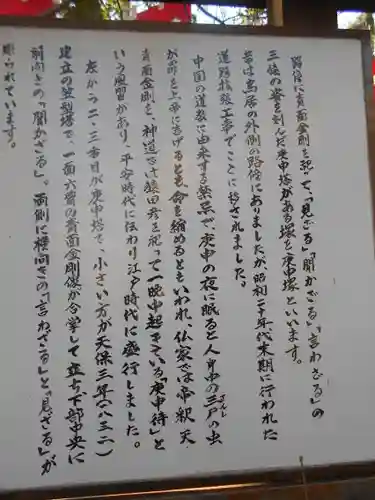 路傍に青面金剛を祀って、「見ざる」「聞かざる」「言わざる」の
三猿の姿を刻んだ庚申塔がある塚を庚申塚といいます。
昔は鳥居の外側の路傍にありましたが、昭和二十年代末期に行われた
道路拡張工事でここに移されました。
中国の道教に由来する禁忌で、庚申の夜に眠ると人身中の三尸の虫
さんし
が罪を上帝に告げるとも、命を縮めるともいわれ、仏家では帝釈天
青面金剛を、神道では猿田彦を祀って一晩中起きている「庚申待」と
いう風習があり、平安時代に伝わり江戸時代に盛行しました。
左から二、三番目が庚申塔で、小さい方が天保三年(一八三二)
建立の笠型塔で、一面六臂の青面金剛像が合掌して立ち下部中央に
前向きの「聞かざる」。両側に横向きの「言わざる」と「見ざる」が
彫られています。